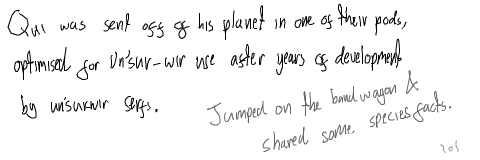 Qui was sent off of his planet in one of their pods,
optimised for Un'sur-wir use after years of development
by un'surwir serfs.
Jumped on the bandwagon &
shared some species facts.